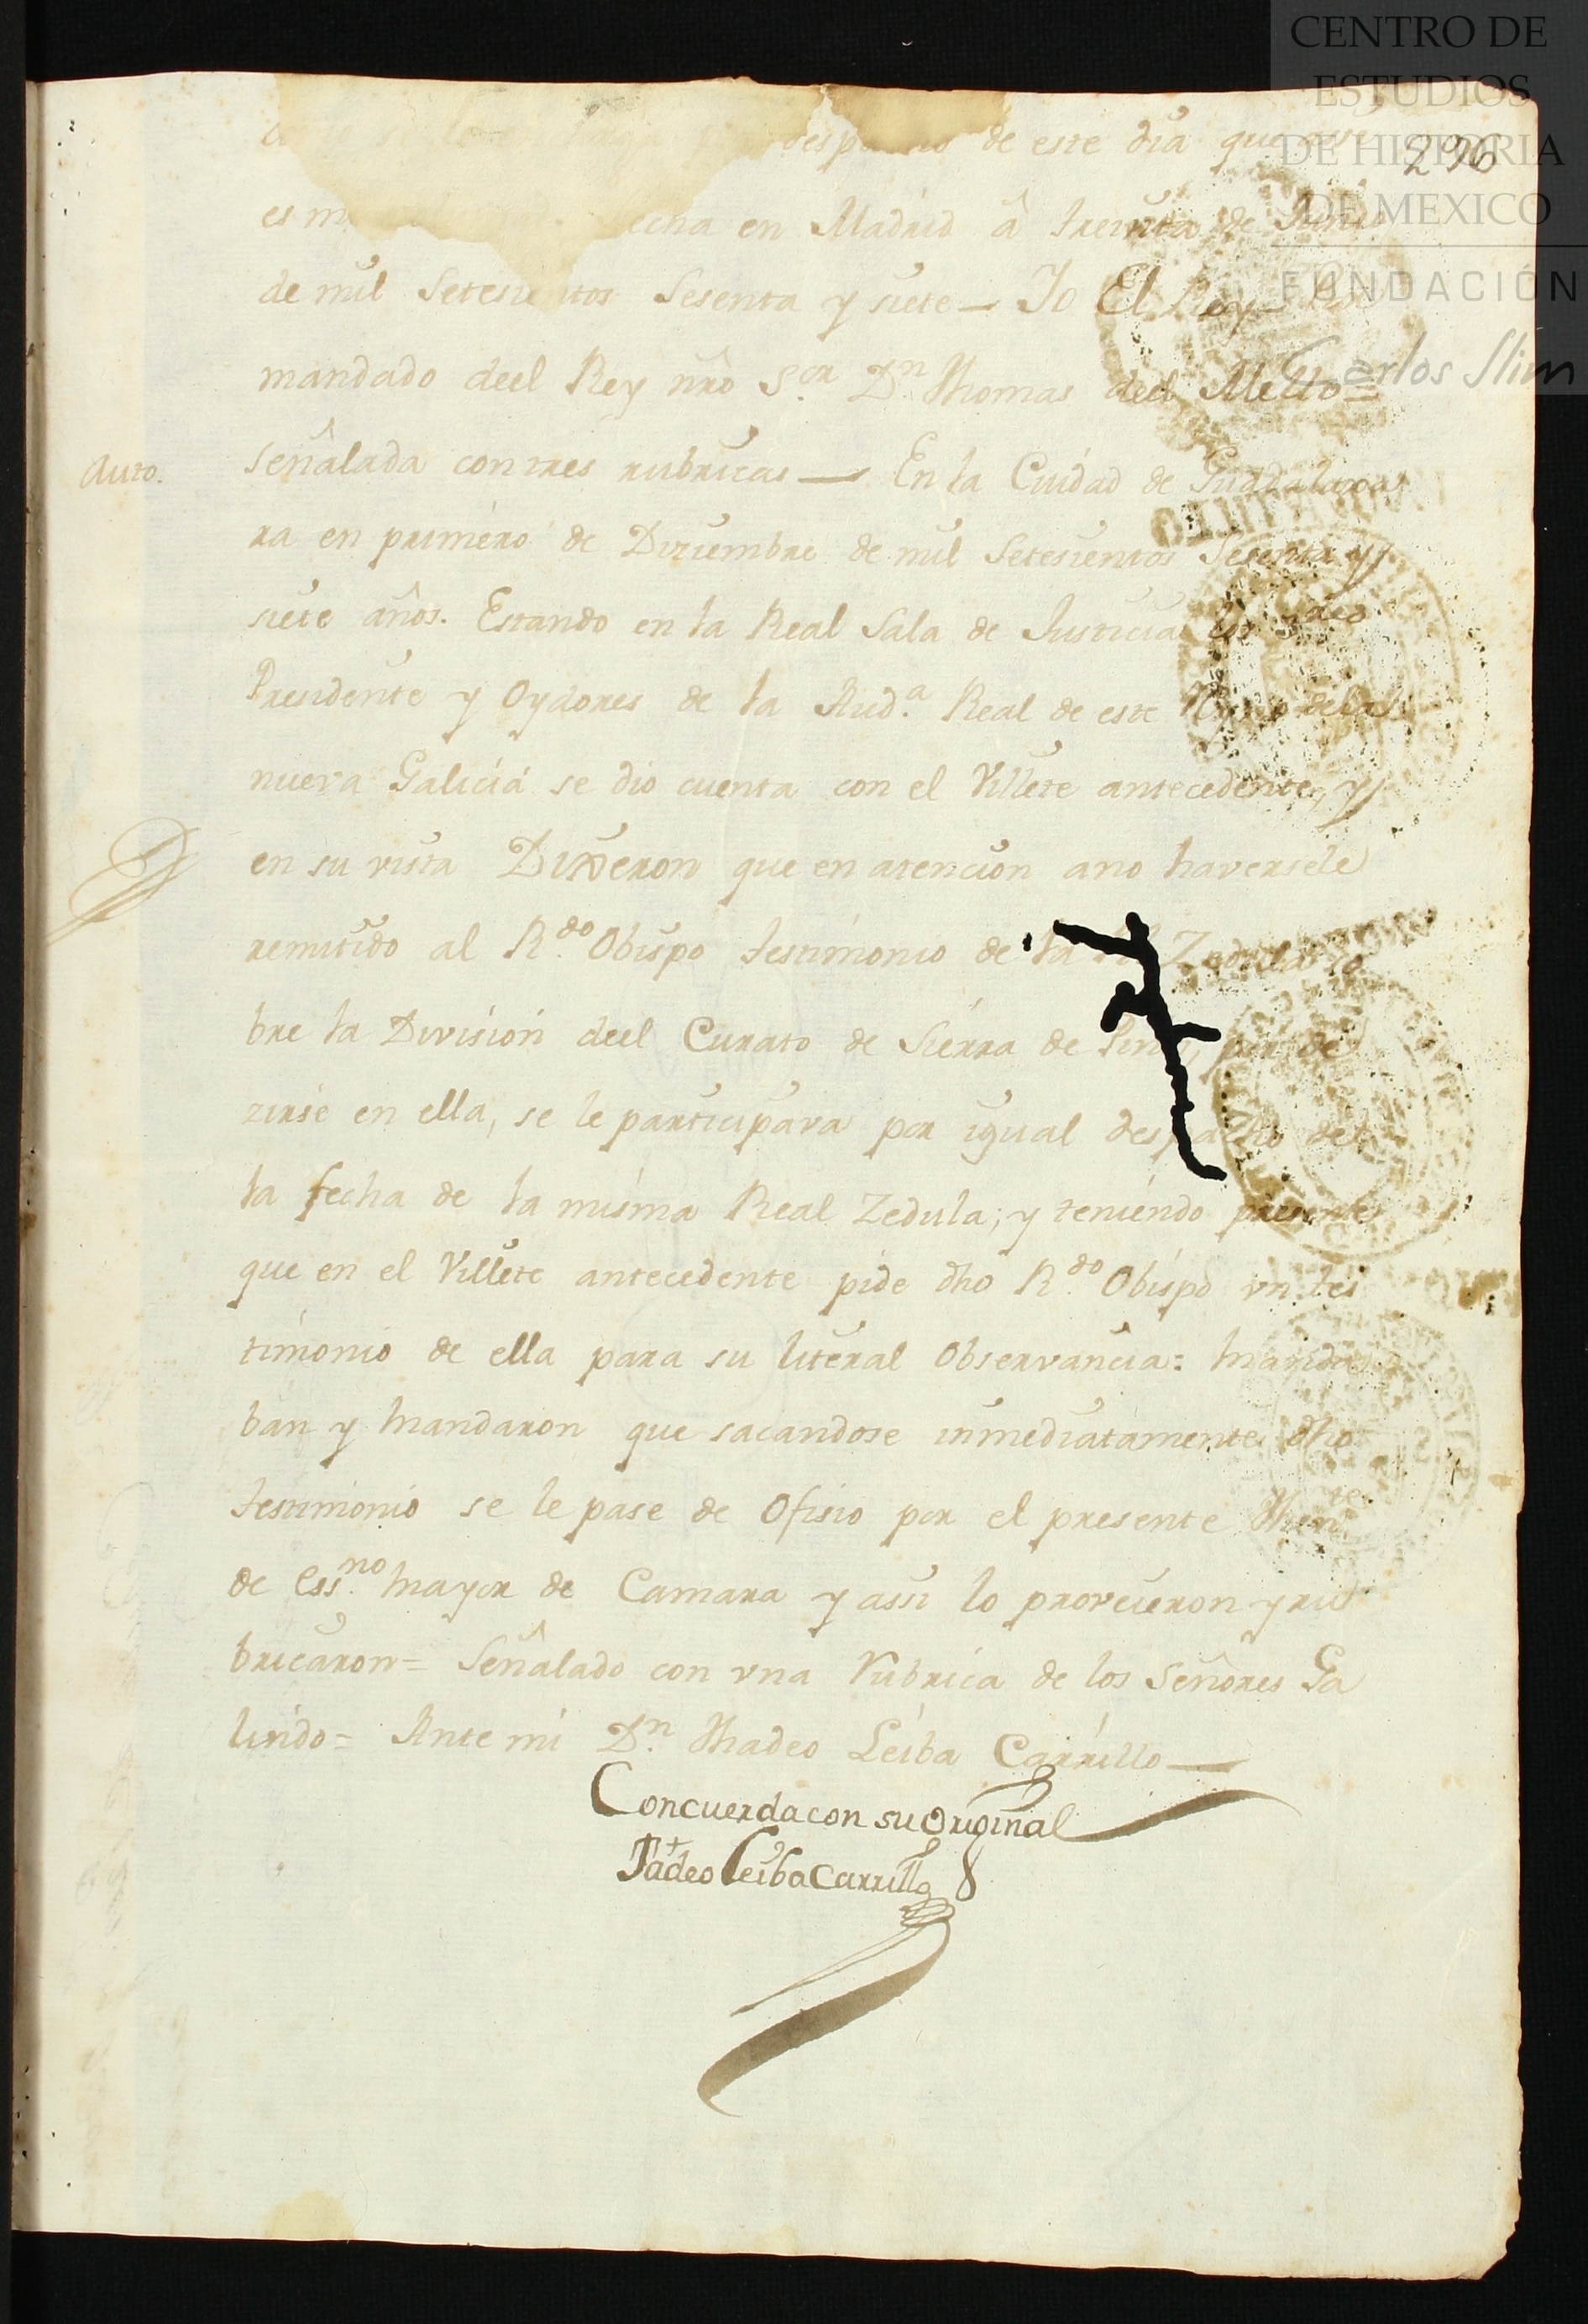 CENTRO DE
ESTUDIOS
DE HISTORIA
DE MEXICO
FUNDACIÓN
Carlos Slim
296
de este dia que assi
es mi fecha en Madrid â treinta de Junio
de mil Setesientos Sesenta y siete — Yo El Rey
mandado deel Rey nrô S.or D.n Thomas del Mello =
Auto.
señalada con tres rubricas — En la Ciudad de Guadalaxa
ra en primero de Diziembre de mil Setesientos Sesenta y
siete años. Estando en la Real Sala de Justicia los Sres
Presidente y Oydores de la Aud.a Real de este Reyno de la
nueva Galicia se dio cuenta con el Villete antecedente, y
en su vista Dixeron que en atencion ano haversele
remitido al R.do Obispo testimonio de la Rl Zedula so
bre la Division deel Curato de Sierra de Pinos, por de
zirse en ella, se le participava por igual despacho de
la fecha de la misma Real Zedula; y teniendo presente
que en el Villete antecedente pide dho R.do Obispo vn tes
timonio de ella para su literal Observancia: manda
ban y mandaron que sacandose inmediatamente dho
testimonio se le pase de Ofisio por el presente Then.te
de Ess.no mayor de Camara y assi lo proveieron y ru
bricaron = Señalado con vna Rubrica de los Señores Ga
lindo = Ante mi D.n Thadeo Leiba Carrillo —
Concuerda con su Original
Tadeo Leiba Carrillo